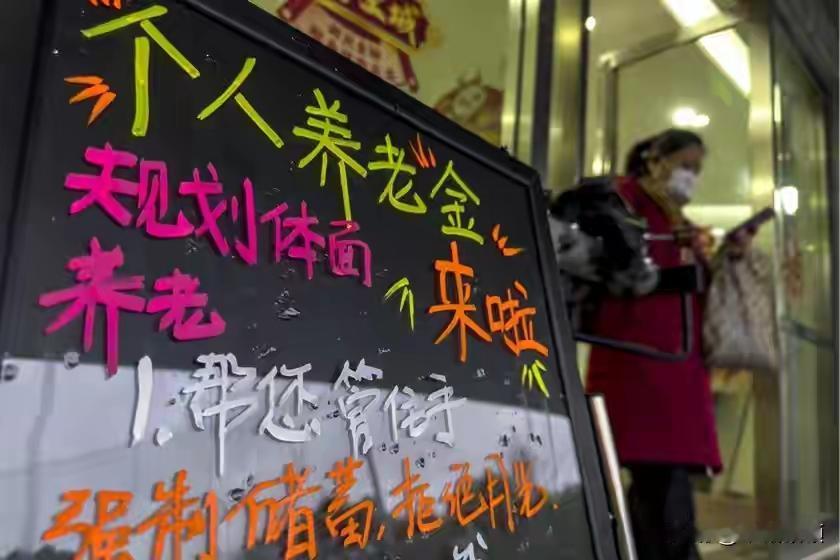 个人养老金
来啦
规划体面
养老
1.帮您管住手
强制储蓄,拒绝月光.